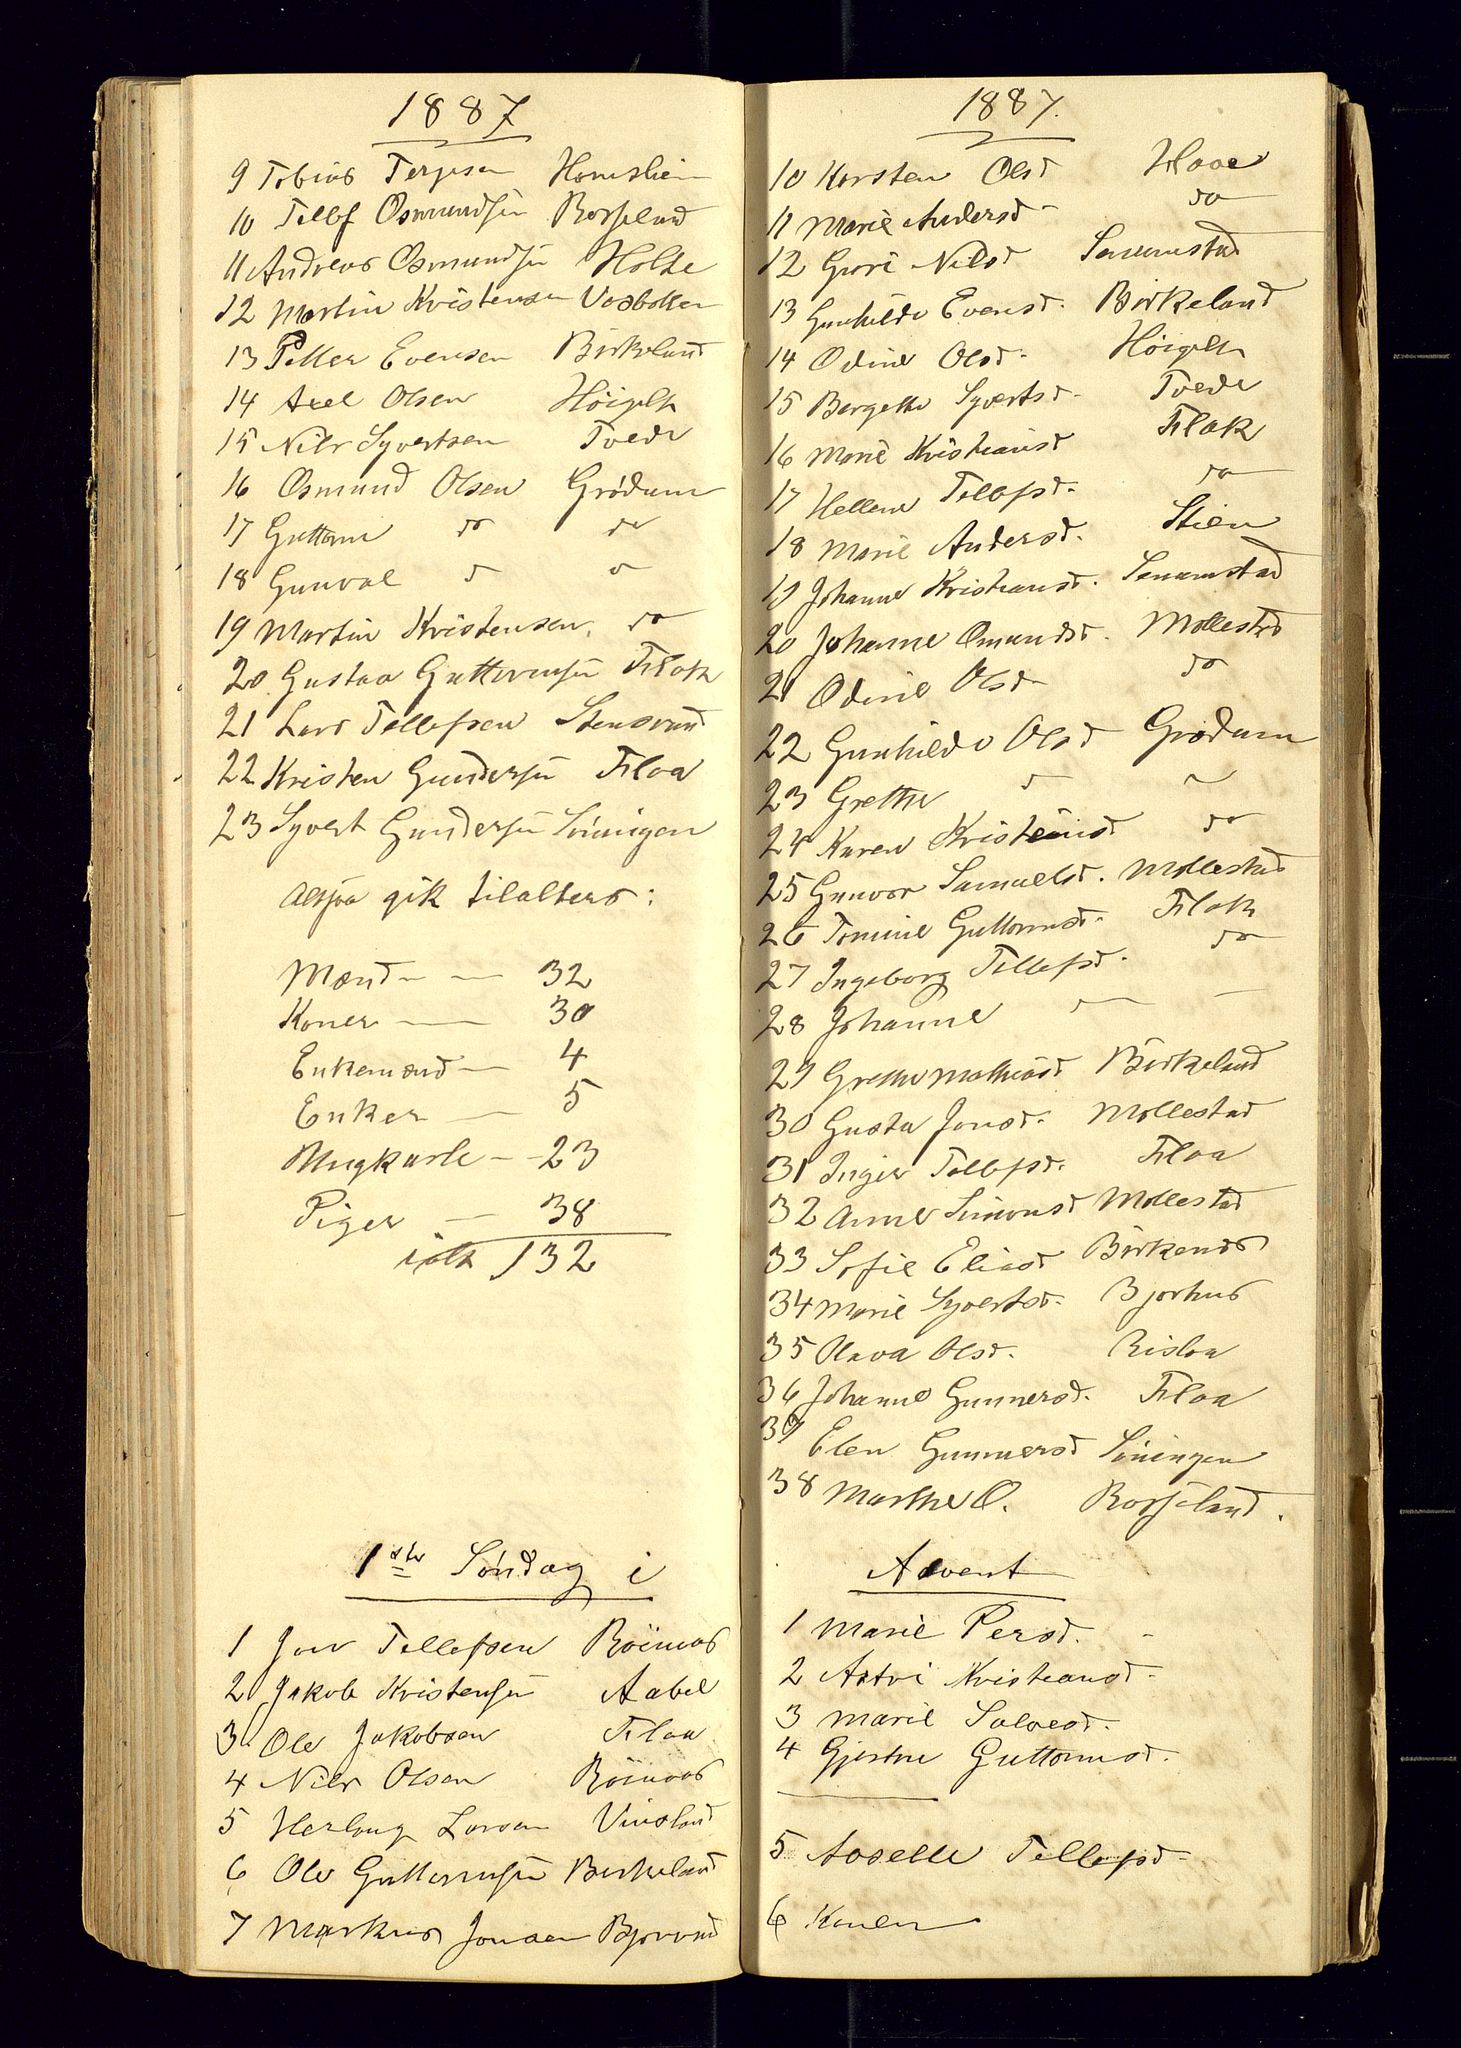 1887
9 Tobias Terjesen Homslien
10 Tellef Osmundsen Rosseland
11 Andreas Osmundsen Holte
12 Martin Kristensen Vasbotten
13 Petter Evensen Birkeland
14 Axel Olsen Höigilt
15 Nils Syvertsen Tvede
16 Osmund Olsen Grødum
17 Guttorm do do
18 Gunval
19 Martin Kristensen. do
20 Gustav Guttormsen Flak
21 Lars Tellefsen Stensvand
22 Kristen Gundersen Flaa
23 Syvert Gundersen Söningen
altsaa gik tilalters:
Mænd — 32
Koner — 30
Enkemænd — 4
Enker — 5
Ungkarle — 23
Piger — 38
ialt 132
1ste Søndag i
1 Jens Tellefsen Röinaas
2 Jakob Kristensen Aabel
3 Ole Jakobsen Flaa
4 Nils Olsen Röinaas
5 Herlaug Larsen Vinsland
6 Ole Guttormsen Birkeland
7 Markus Jonsen Bjorvand
1887.
10 Karsten Olsd Haae
11 Marie Andersd do
12 Guri Nilsd Senumstad
13 Gunhilde Evensd. Birkeland
14 Odine Olsd. Höigilt
15 Bergethe Syvertsd. Tvede
16 Marie Kristiansd Flak
17 Hellene Tellefsd. do
18 Marie Andersd. Stien
19 Johanne Kristiansd. Senumstad
20 Johanne Omundsd. Mollestad
21 Odine Olsd do
22 Gunhilde Olsd Grødum
23 Grethe
24 Karen Kristensd do
25 Gunvor Samuelsd. Mollestad
26 Tomine Guttormsd. Flak
27 Ingeborg Tellefsd. do
28 Johanne — —
29 Grethe Mathiasd Birkeland
30 Gusta Jonsd. Mollestad
31 Inger Tellefsd. Flaa
32 Anne Simonsd Mollestad
33 Sofie Eliasd
34 Marie Syvertsd. Bjorhus
35 Olava Olsd. Rislaa
36 Johanne Gunnersd. Flaa
37 Elen Gunnersd Söningen
38 Marthe O. Rosseland.
Advent
1 Marie Persd.
2 Astri Kristiansd.
3 Marie Salvesd.
4 Gjertne Guttormsd.
5 Aaselle Tellefsd.
6 Konen